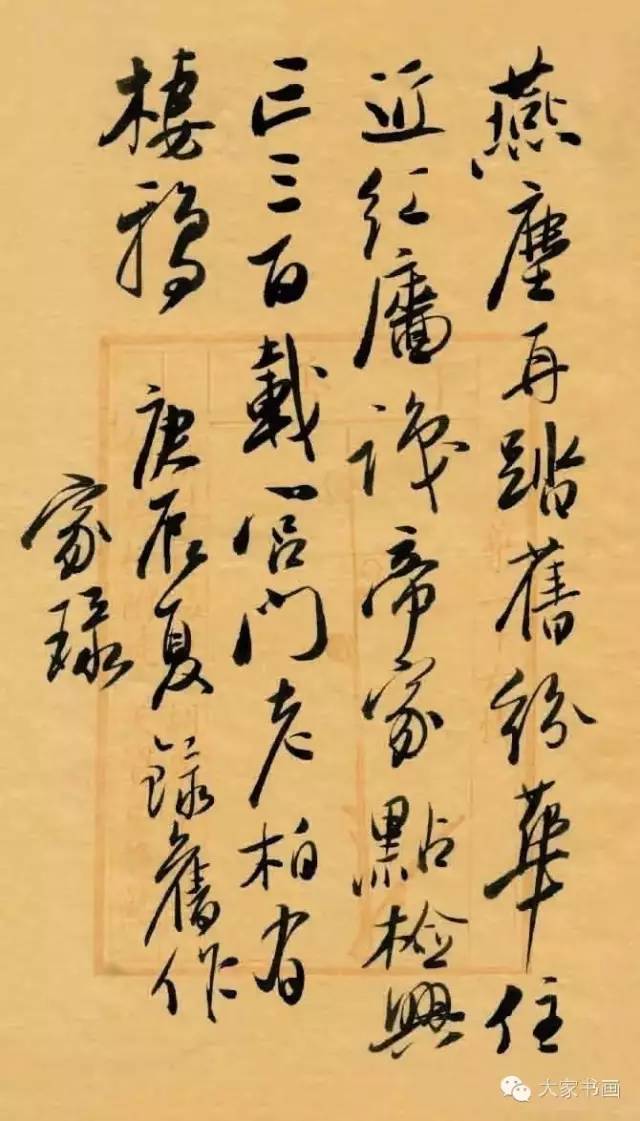 燕塵再踏舊紛華住
近紅廧識帝家點檢興
亡三百載宮門老柏有
棲鴉
庚辰夏錄舊作
家琭
大家书画